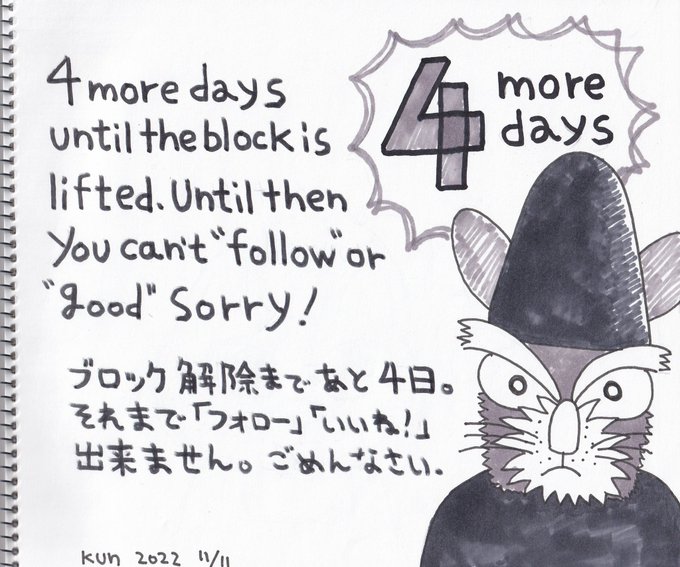 4 more days
until the block is
lifted. Until then
You can't "follow" or
"good" Sorry!
4 more
days
ブロック解除まであと4日。
それまで「フォロー」「いいね!」
出来ません。ごめんなさい.
KUn 2022 11/11